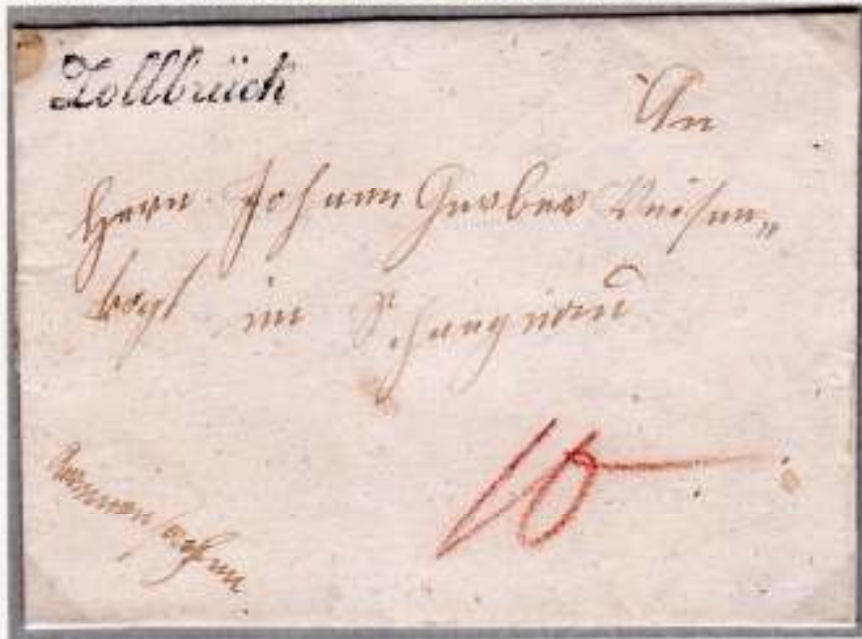 Zollbrück
An
Herrn Johann Gerber Weisen„
vogt im Schangnau
10